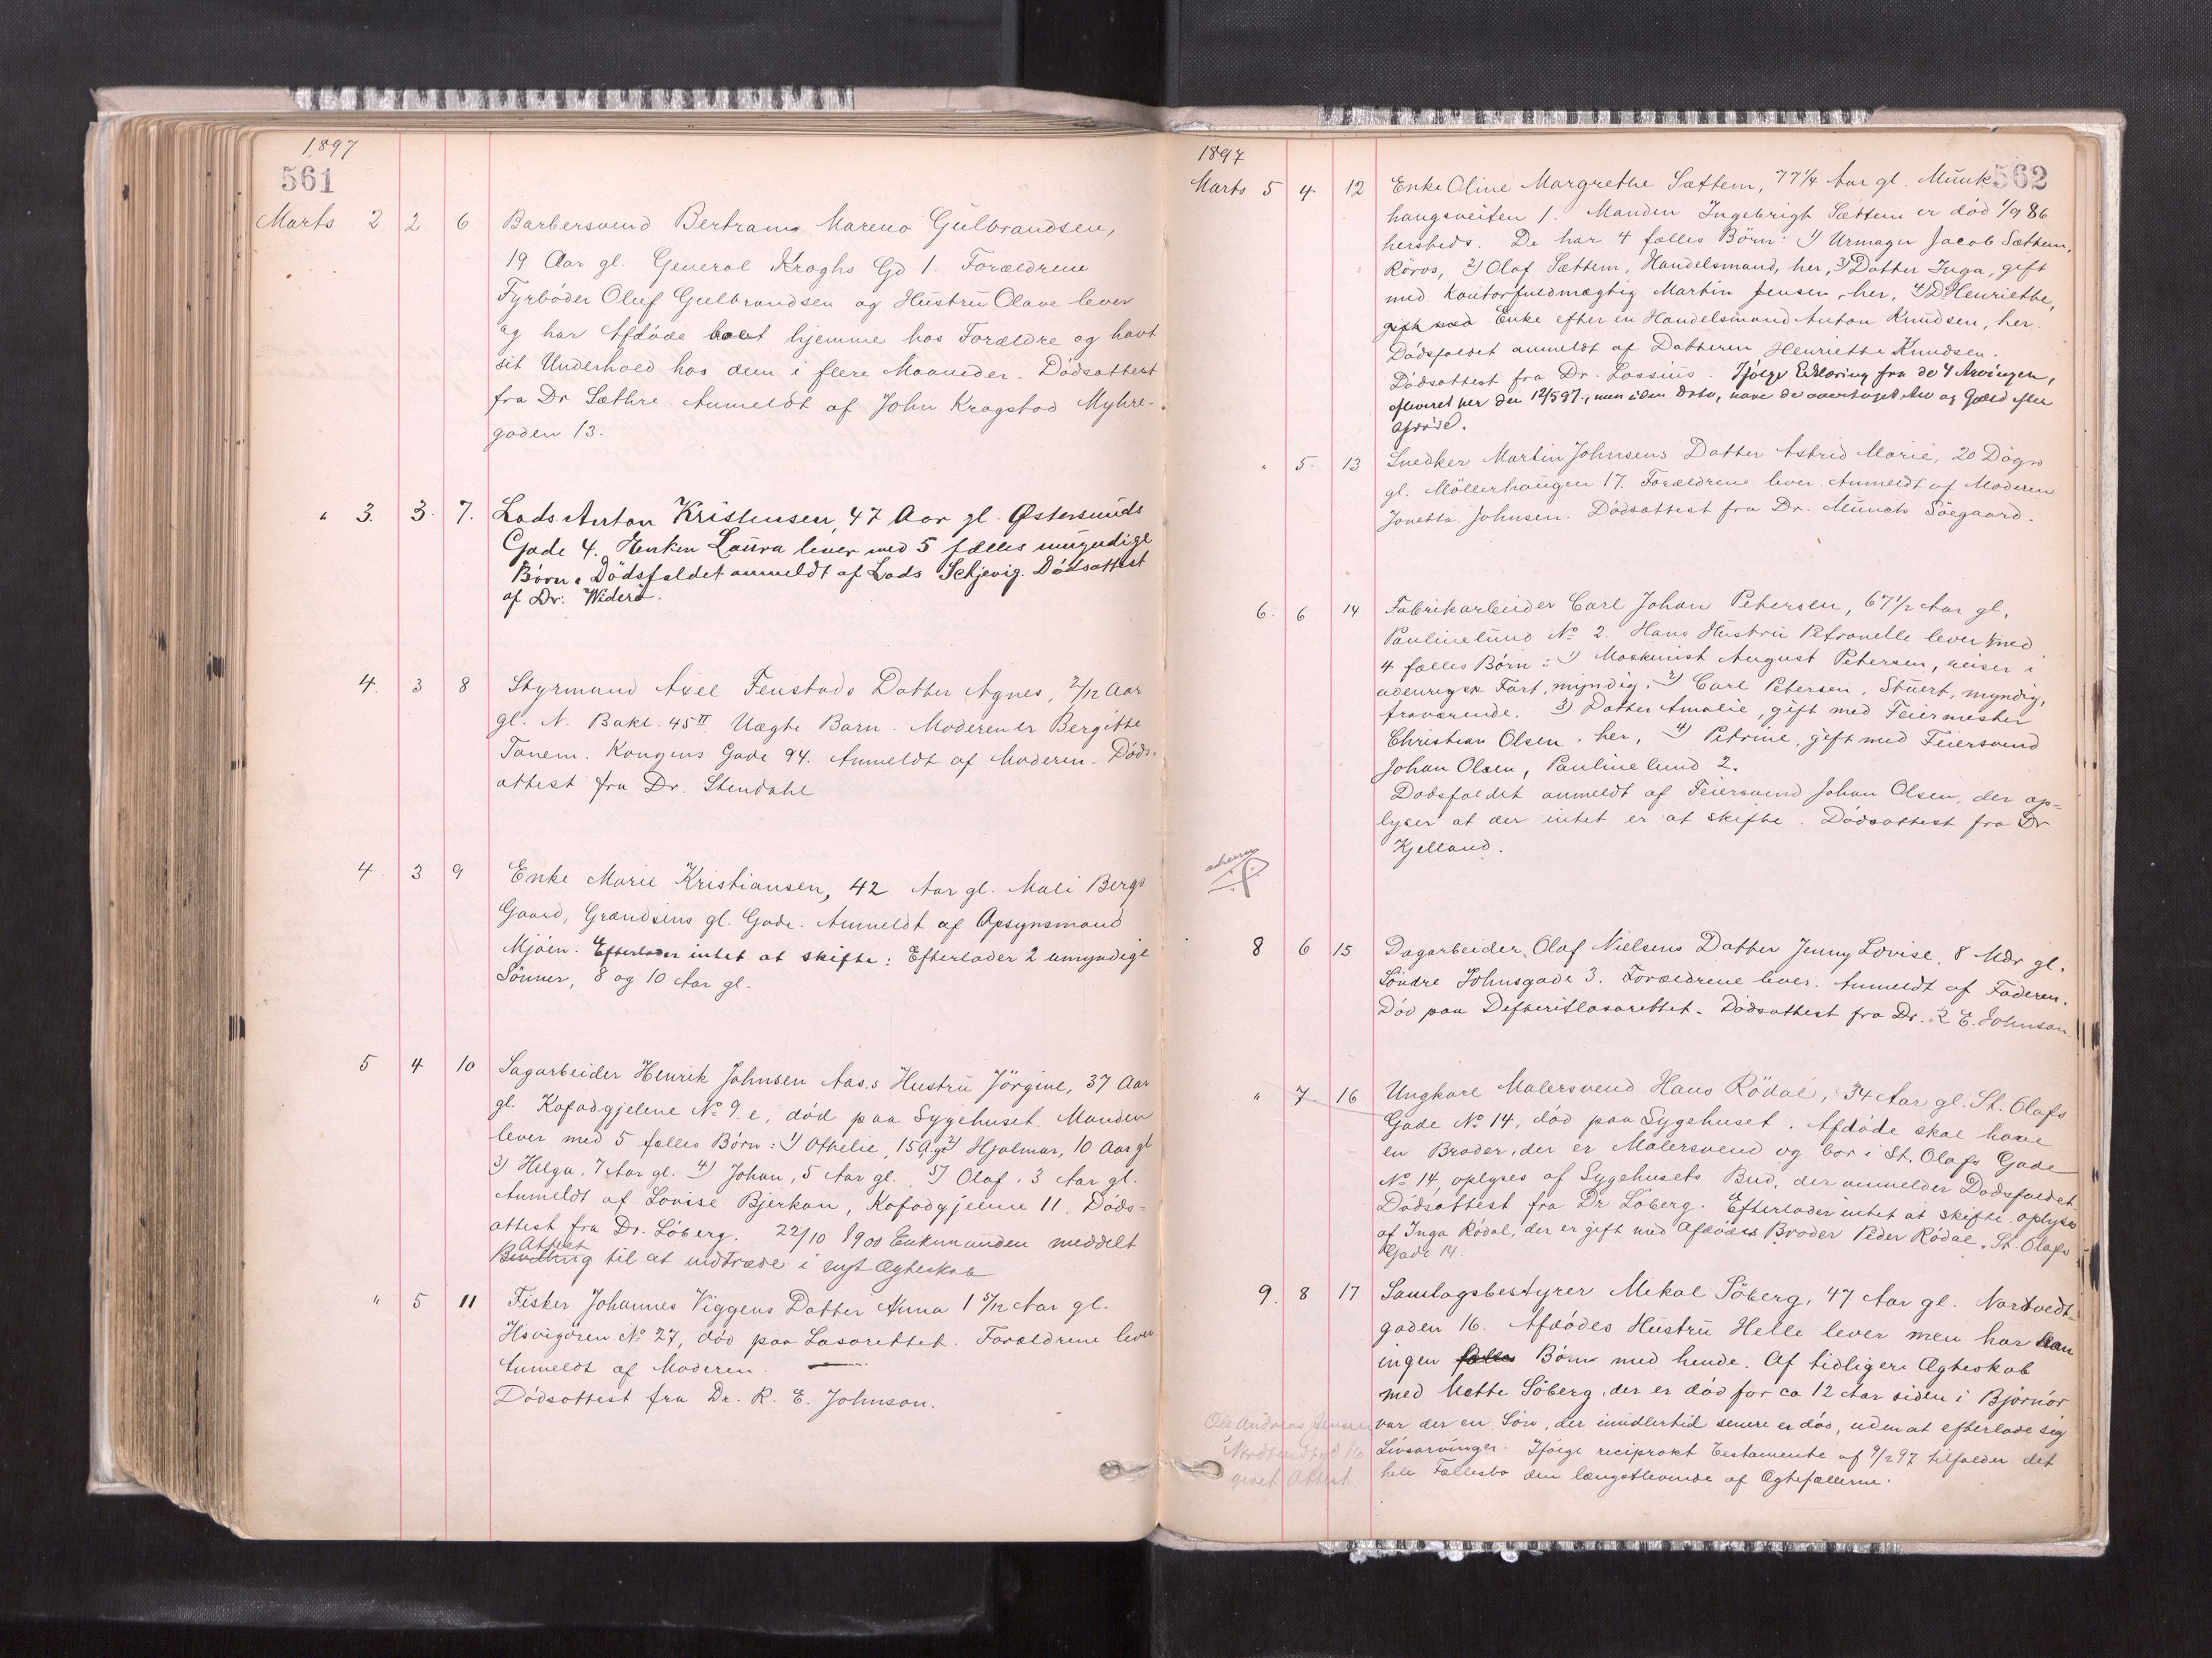 1897
561
Marts 2 2 6 Barbersvend Bertram Mareno Gulbrandsen,
19 Aar gl. General Kroghs Gd 1. Forældrene
Fyrbøder Oluf Gulbrandsen og Hustru Olave lever
og har Afdøde boet hjemme hos Forældre og havt
sit Underhold hos dem i flere Maaneder. Dödsattest
fra Dr Sæthre. Anmeldt af John Kragstad Myhre-
gaden 13.
" 3. 3. 7. Lods Anton Kristensen, 47 Aar gl. Østersunds
Gade 4. Enken Laura lever med 5 fælles umyndige
Börn. Dödsfaldet anmeldt af Lods Schjevig. Dödsattest
af Dr. Widerö.
4. 3 8 Styrmand Axel Fenstads Datter Agnes, 2/12 Aar
gl. N. Bakl. 45 II. Uægte Barn. Moderen er Bergitte
Tanem. Kongens Gade 94. Anmeldt af Moderen. Döds-
attest fra Dr. Stendahl
4. 3 9 Enke Marie Kristiansen, 42 Aar gl. Mali Bergs
Gaard, Grændsens gl. Gade. Anmeldt af Opsynsmand
Mjöen. Efterlader intet at skifte: Efterlader 2 umyndige
Sönner, 8 og 10 Aar gl.
5 4 10 Sagarbeider Henrik Johnsen Aas.s Hustru Jörgine, 37 Aar
gl. Kofodgjelene No 9 e, död paa Sygehuset. Manden
lever med 5 fælles Börn: 1) Othilie, 15 A.gl. 2) Hjalmar, 10 Aar gl
3) Helga, 7 Aar gl. 4) Johan, 5 Aar gl. 5) Olaf, 3 Aar gl.
Anmeldt af Lovise Bjerkan, Kofodgjelene 11. Döds-
attest fra Dr. Löberg. 22/10 1900 Enkemanden meddelt
Attest
Bevilling til at indtræde i nyt Ægteskab
" 5 11 Fisker Johannes Viggens Datter Anna 1 5/12 Aar gl.
Hsvigören No 27, död paa Lasarettet. Forældrene lever
Anmeldt af Moderen.
Dödsattest fra Dr. R. E. Johnson.
1897
562
Marts 5 4 12 Enke Oline Margrethe Sættem, 77 1/4 Aar gl. Munk
haugveiten 1. Manden Ingebrigt Sættem er död 1/9 86
hersteds. De har 4 fælles Börn: 1) Urmager Jacob Sættem,
Röros, 2) Olaf Sættem, Handelsmand, her, 3) Datter Inga, gift
med Kontorfuldmægtig Martin Jensen, her, 4) D. Henriette,
gift med Enke efter en Handelsmand Anton Knudsen, her.
Dödsfaldet anmeldt af Datteren Henriette Knudsen.
Dödsattest fra Dr. Lossius. Ifölge Erklæring fra de 4 Arvinger,
afleveret her den 12/5 97, men uden Dato, have de overtaget Arv og Gjæld efter
Afdöde.
" 5. 13 Snedker Martin Johnsens Datter Astrid Marie, 20 Dögn
gl. Möllerhaugen 17. Forældrene lever. Anmeldt af Moderen
Jonetta Johnsen. Dödsattest fra Dr. Münch Söegaard.
6. 6 14 Fabrikarbeider Carl Johan Petersen, 67 1/2 Aar gl,
Paulinelund No 2. Hans Hustru Petronelle lever med
4 fælles Börn: 1) Maskinist August Petersen, reiser i
udenrigsk Fart, myndig, 2) Carl Petersen, Stuert, myndig,
fraværende. 3) Datter Amalie, gift med Feiermester
Christian Olsen, her, 4) Petrine, gift med Feiersvend
Johan Olsen, Paulinelund 2.
Dødsfaldet anmeldt af Feiersvend Johan Olsen, der op=
lyser at der intet er at skifte. Dödsattest fra Dr
Kjelland.
8 6 15 Dagarbeider Olaf Nielsens Datter Jenny Lovise, 8 Mdr gl.
Söndre Johnsgade 3. Forældrene lever. Anmeldt af Faderen.
Död paa Defteritlasarettet. Dödsattest fra Dr. R E. Johnson
" 7 16 Ungkarl Malersvend Hans Rödal, 34 Aar gl. St. Olafs
Gade No 14, död paa Sygehuset. Afdöde skal have
en Broder, der er Malersvend og bor i St. Olafs Gade
No 14, oplyses af Sygehusets Bud, der anmelder Dødsfaldet.
Dödsattest fra Dr Löberg. Efterlader intet at skifte oplyses
af Inga Rödal, der er gift med Afdödes Broder Peder Rödal, St. Olafs
Gade 14.
9. 8 17 Samlagsbestyrer Mikal Söberg, 47 Aar gl. Nordvedt-
gaden 16. Afdödes Hustru Helle lever men har han
ingen fælles Börn med hende. Af tidligere Ægteskab
med Mette Söberg, der er död for ca 12 Aar siden i Björnör
var der en Sön, der imidlertid senere er död, uden at efterlade sig
Livsarvinger. Ifölge reciprokt Testamente af 9/2 97 tilfalder det
hele Fællesbo den længstlevende af Ægtefællerne.
Ole Andreas Jensen
Nordvedtgd 16
givet Attest